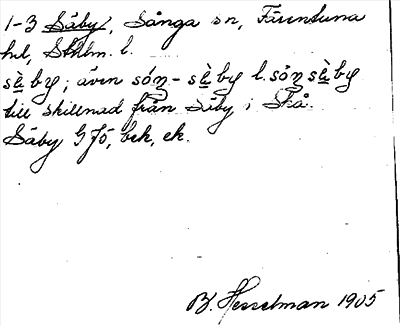 1-3 Säby, Sånga sn, Färentuna
hd, Sthlm. l.
sè̱by; även sóŋ-sè̱by l. sóŋsè̱by
till skillnad från Säby i Skå.
Säby G Jö, bek, ek.
B. Hesselman 1905